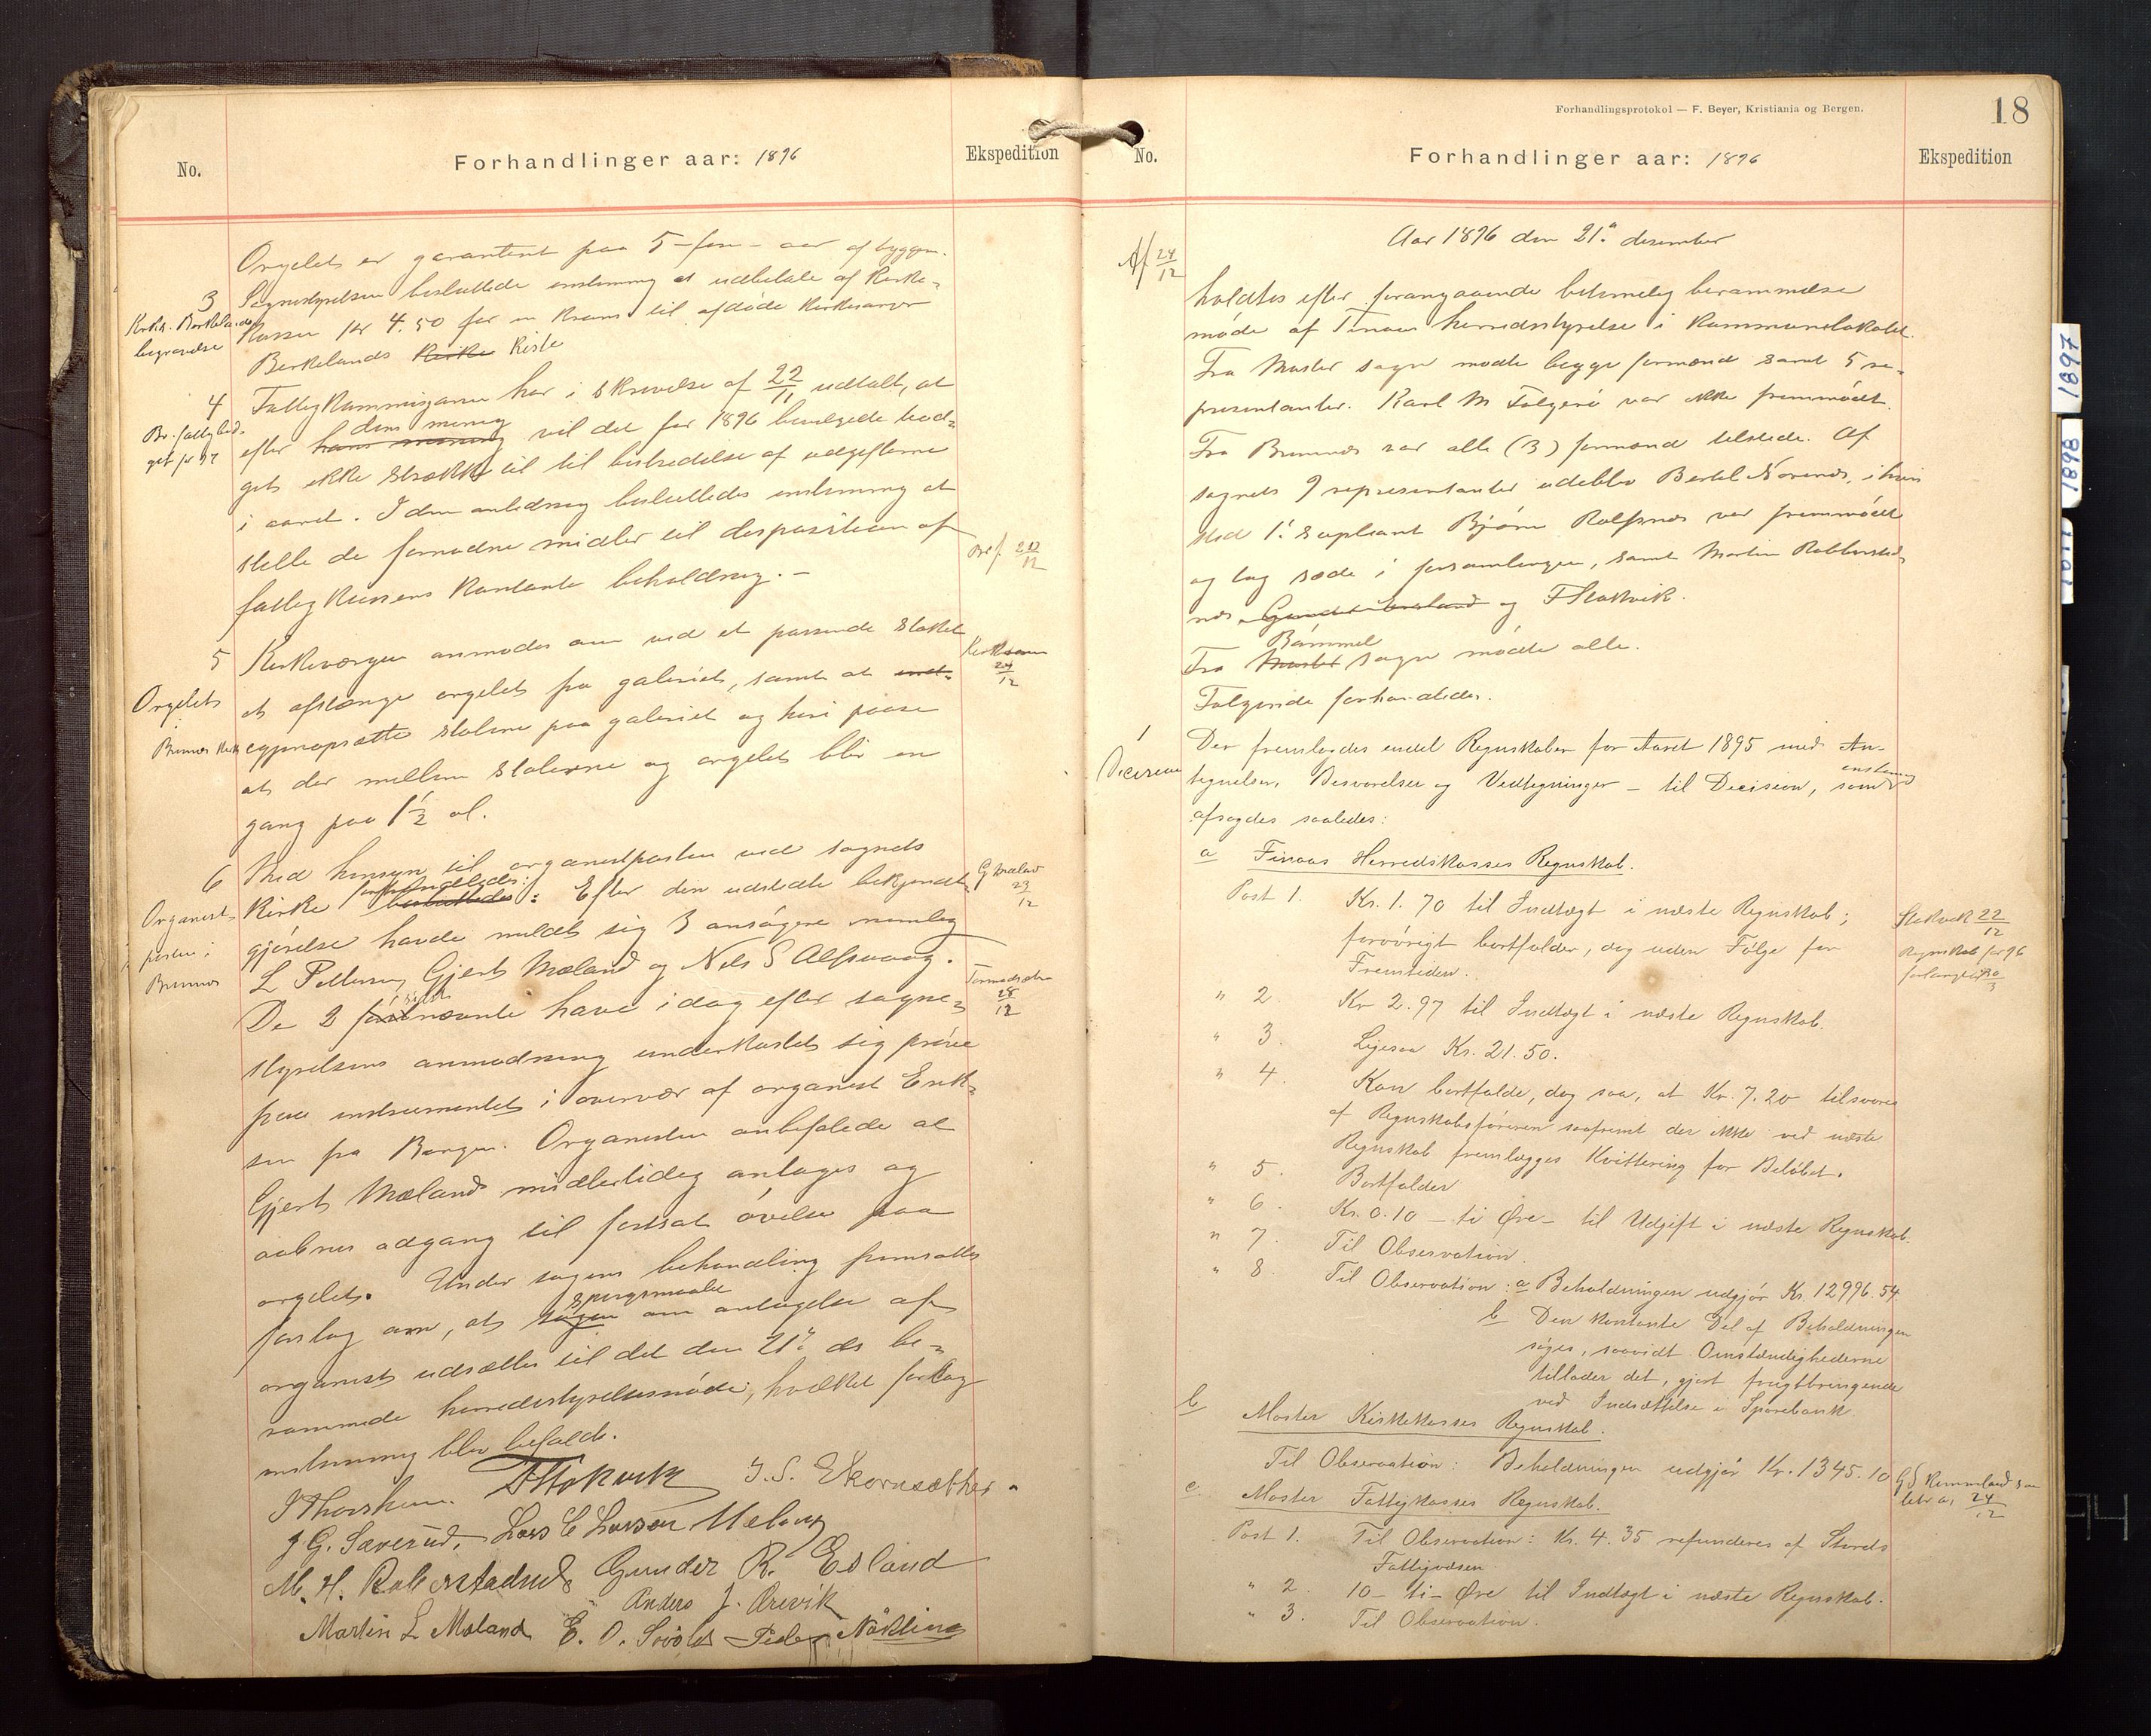 No.
Forhandlinger aar: 1896
Ekspedition
Orgelet er garanteret paa 5 - fem - aar af byggm.
3 Sognestyrelsen besluttede enstemmig at udbetale af Kirke-
Kirkes. Berkelands begravelse
kassen kr 4.50 for en krans til afdøde kirkesanger
Berkelands Kirke Kiste
4 Fattigkommisjonen har i skrivelse af 22/11 udtalt, at
Br. fattigbud-
get for 97
dens mening
efter hans mening vil det for 1896 bevilgede bud-
get ikke strække til til bestridelse af udgifterne
i aaret. I den anledning besluttedes enstemmig at
stille de fornødne midler til desposition af
fattigkassens kontante beholdning. -
Bref 22/12
5 Kirkeværgen anmodes om ved et passende stakit
Orgelet
i
Bremnes kirke
at afstænge orgelet fra galeriet, samt at
Kirkev 24/12
egjenopsætte stolene paa galeriet og heri passe
at der mellem stolerne og orgelet blir en
gang paa 1½ al.
6 Med hensyn til organistposten ved sognets
Organist-
posten i
Bremnes
Kirke forhandledes: besluttedes: Efter den udstedte bekjendt-
G Mæland 23/12
gjørelse havde meldt sig 3 ansøgere nemlig
L Pettersen, Gjert Mæland og Nils S Alfsvaag.
De 2 sidst førstnævnte have idag efter sogne-
28/12
styrelsens anmodning underkastet sig prøve
paa instrumentet i overvær af organist Erik-
sen fra Bergen. Organisten anbefalede at
Gjert Mæland midlertidig antages og
aabnes adgang til fortsat øvelse paa
orgelet. Under sagens behandling fremsattes
spørgsmaalet
forslag om, at sagen om antagelse af
organist udsættes til det den 21de ds be-
rammede herredsstyrelsesmøde, hvilket forslag
enstemmig blev befalet.
J Thorsheim. F Stokvik J. S. Ekornsæther.
J G. Sæverud. Lars C Larsen Meling
M. H. Rabberstadnes Gunder R. Esland
Anders J. Ørevik
Martin L Mæland E. O. Svolld Peder Nökling

Forhandlingsprotokol — F. Beyer, Kristiania og Bergen.
18
No.
Forhandlinger aar: 1896
Ekspedition
Af 24/12
Aar 1896 den 21de desember
holdtes efter forangaaende betimelig berammelse
møde af Finaas herredsstyrelse i kommunelokalet.
Fra Moster sogn mødte begge formænd samt 5 re-
presentanter. Karl M Folgerø var ikke fremmødt.
Fra Bremnes var alle (3) formænd tilstede. Af
sognets 9 representanter udeblev Bertel Norenes, i hvis
sted 1. supleant Bjørn Rolfsnes var fremmødt
og tog sæde i forsamlingen, samt Martin Rabberstad-
nes Gunder Esland og F Stokvik.
Bømmel
Fra Moster sogn mødte alle.
Følgende forhandledes.
1
Decision
Der fremlagdes endel Regnskaber for Aaret 1895 med An-
tegnelser, Besvarelser og Vedtegninger - til Decision, som enstemmig
afsagdes saaledes:
a Finaas Herredskasses Regnskab.
Post 1. Kr. 1.70 til Indtægt i næste Regnskab;
forøvrigt bortfalder, dog uden Følge for
Fremtiden.
Stokvik 22/12
Regnskab for 96
forlangt 30/3
" 2. Kr 2.97 til Indtægt i næste Regnskab.
" 3. Ligesaa Kr. 21.50.
" 4. Kan bortfalde, dog saa, at Kr. 7.20 tilsvares
af Regnskabsføreren saafremt der ikke ved næste
Regnskab fremlægges Kvittering for Beløbet.
" 5. Bortfalder
" 6. Kr. 0.10 - ti Øre - til Udgift i næste Regnskab.
" 7. Til Observation.
" 8. Til Observation: a Beholdningen udgjør Kr. 12996.54.
b Den kontante Del af Beholdningen
søges, saavidt Omstændighederne
tillader det, gjort frugtbringende
ved Indsættelse i Sparebank
b Moster Kirkekasses Regnskab.
Til Observation: Beholdningen udgjør Kr. 1345.10
c. Moster Fattigkasses Regnskab.
24/12
Post 1. Til Observation: Kr. 4.35 refunderes af Stords
Fattigvæsen.
" 2. 10 - ti - Øre til Indtægt i næste Regnskab.
" 3. Til Observation.
1897
1898